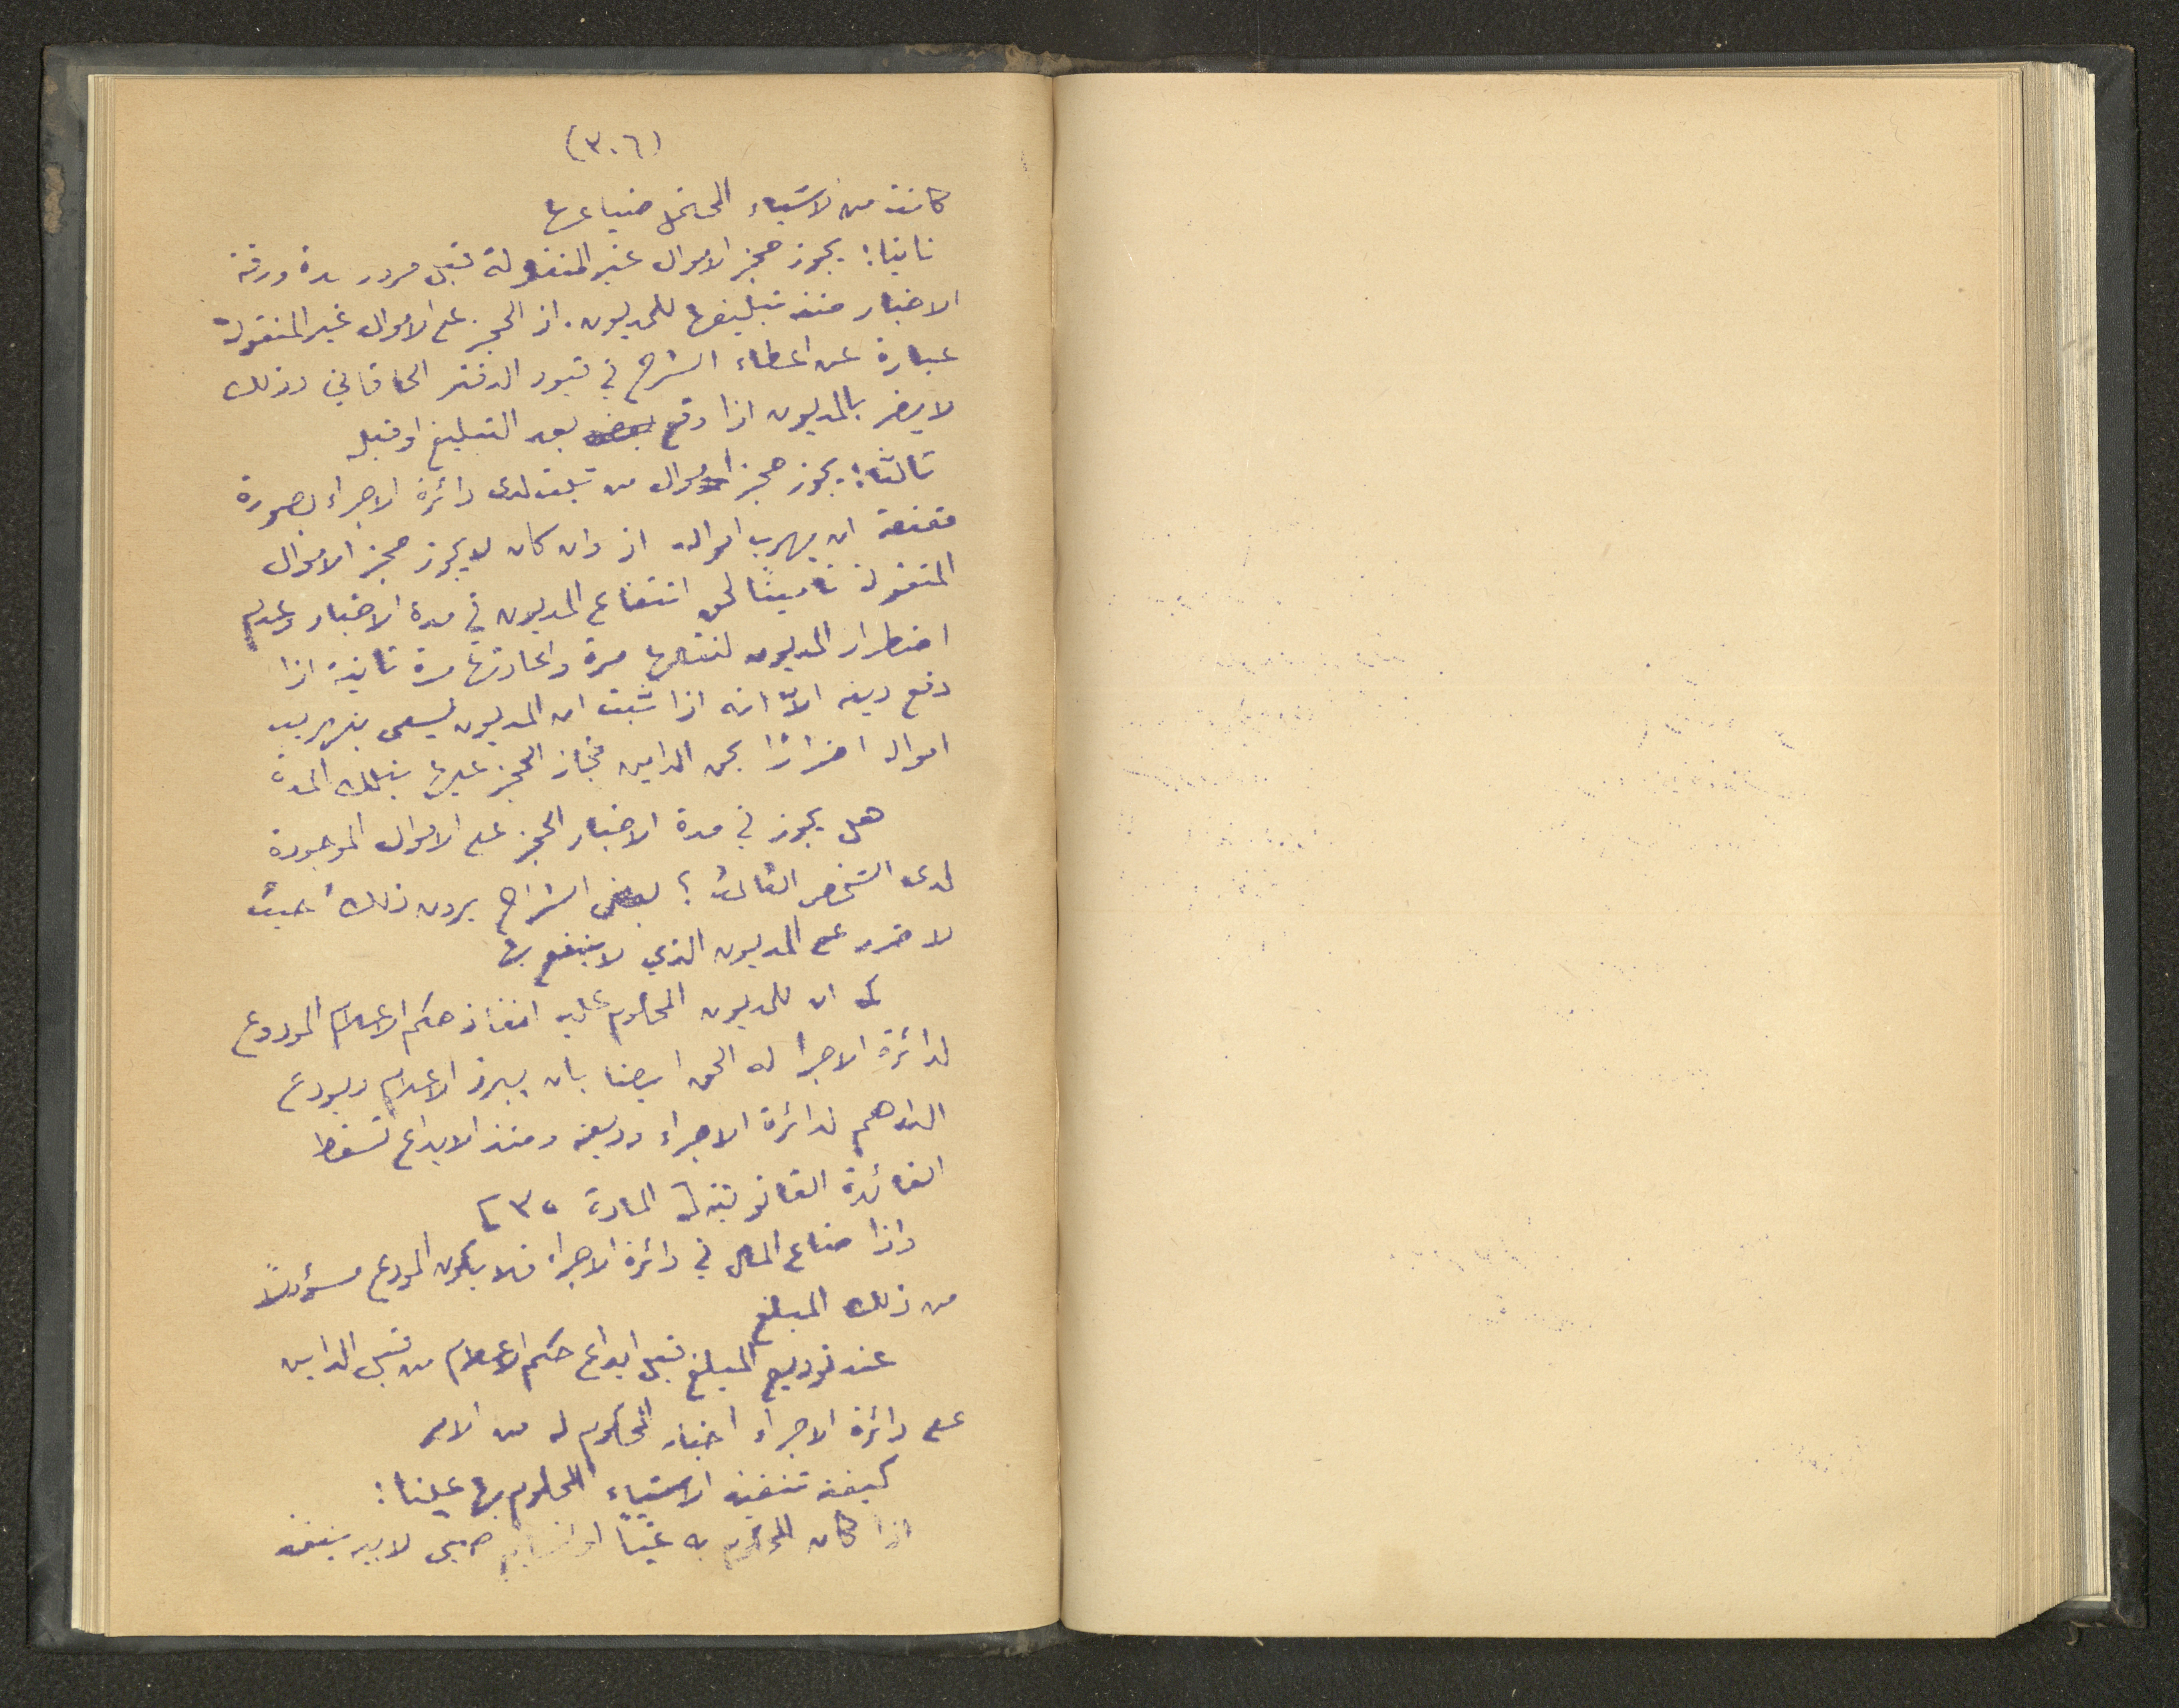 (٣٠٦)
كانت من الاشياء المحتمل ضياعها
ثانيا: يجوز حجز الاموال غير المنقولة قبل مرور مدة ورقة
الاخبار منذ تبليغها للمديون. اذ الحجز على الاموال غير المنقولة
عبارة عن اعطاء الشرح في قيود الدفتر الخاقاني وذلك
لا يضر بالمديون اذا وقع بعد التبليغ او قبله
ثالثا: يجوز حجز اموال من ثبت لدى دائرة الاجراء بصورة
مقنعة ان يهرب امواله اذ وان كان لا يجوز حجز الاموال
المنقولة تاميناً لحق انتفاع المديون في مدة الاخبار وعدم
اضطرار المديون لنقلها مرة واعادتها مرة ثانية اذا
دفع دينه الاّ انه اذا ثبت ان المديون يسعى بتهريب
امواله اضرارًا بحق الداين فجاز الحجز عليها بتلك المدة
هل يجوز في مدة الاخبار الحجز على الاموال الموجودة
لدى الشخص الثالث؟ بعض الشراح يرون ذلك حيث
لا ضرر على المديون الذي لا ينتفع بها
كما ان للمديون المحكوم عليه انفاذ حكم الاعلام المودوع
لدائرة الاجرا له الحق ايضا بان يبرز الاعلام ويودع
الدراهم لدائرة الاجراء وديعة ومنذ الايداع تسقط
الفائدة القانونية المادة ٣٥
واذا ضاع المال في دائرة الاجراء فلا يكون المودع مسؤولاً
من ذلك المبلغ
عند توديع المبلغ قبل ايداع حكم الاعلام من قبل الداين
على دائرة الاجراء اخبار المحكوم له من الامر
كيفية تنفيذ الاشياء المحكوم بها عينا:
اذا كان المحكوم به عيناً او تسليم صبي لابيه ينفذ